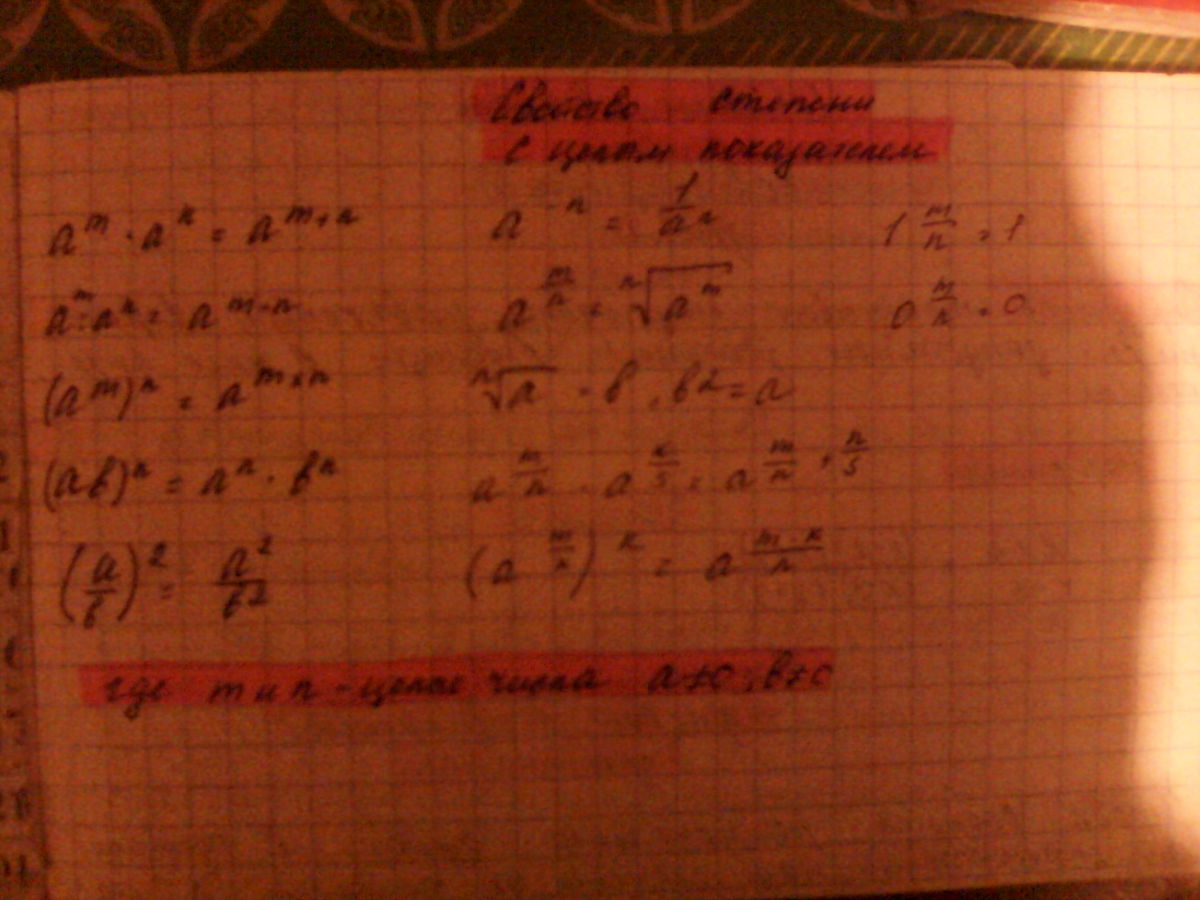 Свойство степени
с целым показателем
a^m · a^n = a^{m+n}
a^m : a^n = a^{m-n}
(a^m)^n = a^{m×n}
(ab)^n = a^n · b^n
(a/b)^2 = a^2/b^2
a^{-n} = 1/a^n
a^{m/n} = ⁿ√a^m
ⁿ√a = b, b2 = a
a^{m/n} · a^{k/s} = a^{m/n + n/s}
(a^{m/n})^k = a^{m·k/n}
1^{m/n} = 1
0^{m/n} = 0
где m и n - целые числа a≠0, b≠0